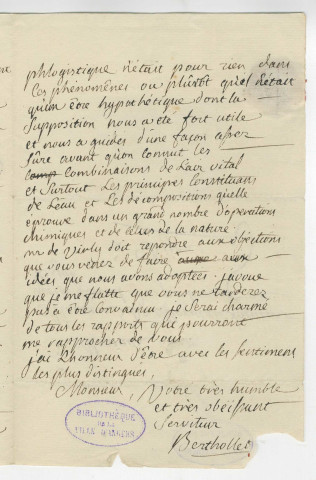 phlogistique n'était pour rien dans
les phénomènes ou plûtôt qu'il n'était
qu'un être hypothétique dont la
supposition nous a eté fort utile
et nous a guidés d'une façon assez
sûre avant qu'on connut les
comp combinaisons de l'air vital
et surtout les principes constituans
de l'eau et les décompositions qu'elle
eprouve dans un grand nombre d'operations
chimiques et de celles de la nature.
mr de Virly doit repondre aux objections
que vous venez de faire aux
idées que nous avons adoptées. j'avoue
que je me flatte que vous ne tarderez
pas a être convaincu. je serai charmé
de tous les rapports qui pourront
me rapprocher de vous.
j'ai l'honneur d'être avec les sentimens
les plus distingués,
Monsieur, Votre très humble
et très obéissant
serviteur
Berthollet
BIBLIOTHÈQUE
DE LA
VILLE D'ANGERS